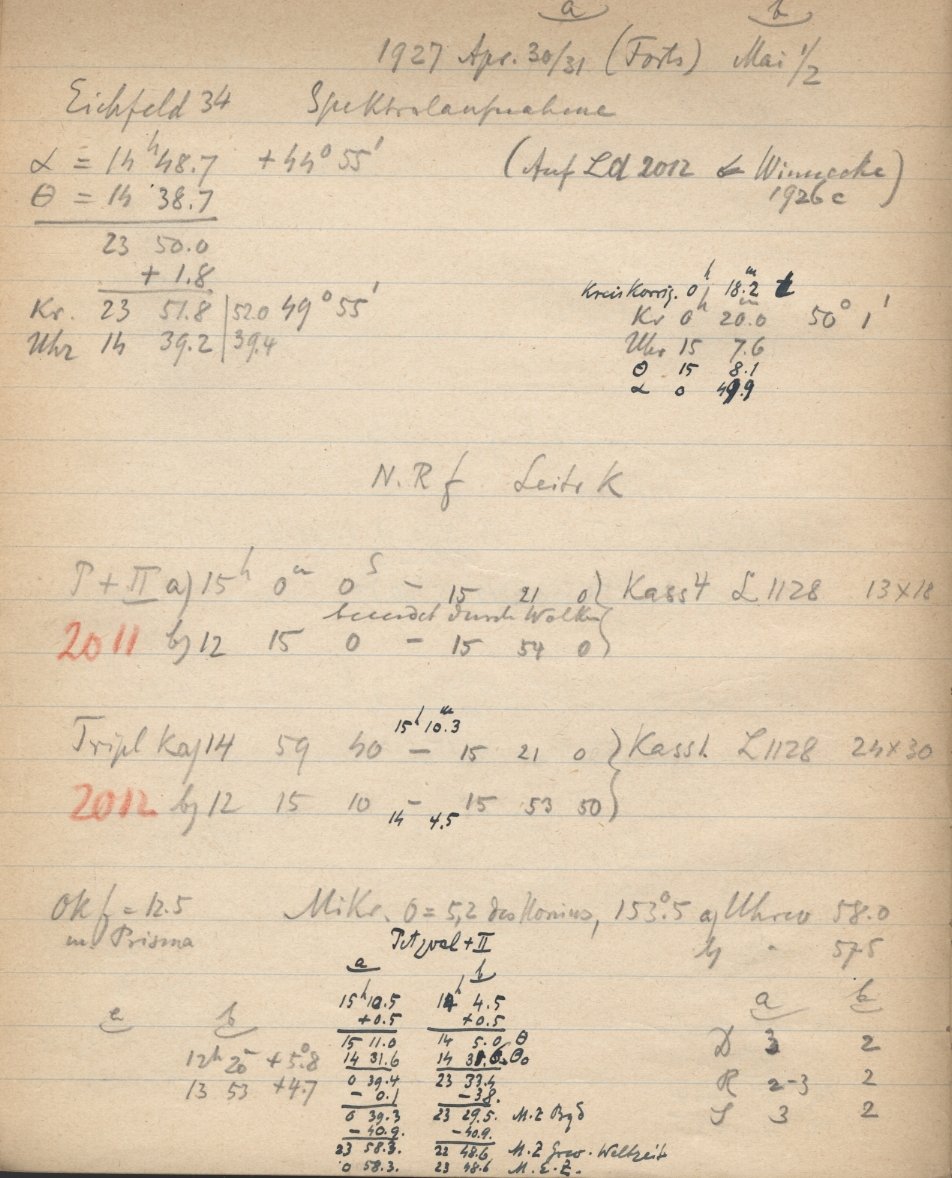 a b
1927 Apr. 30/31 (Forts) Mai 1/2
Eichfeld 34 Spektralaufnahme
α = 14 h 48.7 +44° 55'
(Auf Ld 2012 Winnecke
1926 c)
θ = 14 38.7
23 50.0
+ 1.8
Kr. 23 51.8 | 520 49° 55'
Uhr 14 39.2 | 39.4
Kreiskorrig. 0 h 18.2 m t
Kr 0 h 20.0 m 50° 1'
Uhr 15 7.6
θ 15 8.1
α 0 49.9
N.R f Leitr K
P + II a) 15 h 0 m 0 s – 15 21 0 } Kass 4 L 1128 13×18
beendet durch Wolken
2011 b) 12 15 0 – 15 54 0
15 h 10.3 m
Tripl K a) 14 59 40 – 15 21 0 } Kass 1 L 1128 24×30
2012 b) 12 15 10 – 15 53 50
14 4.5
Ok f = 12.5 Mikr. 0 = 5,2 des Nonius, 153°.5 a) Uhrw 58.0
m. Prisma b) " 57.5
Petzval + II
a b
15 h 10.5 14 h 4.5
+0.5 +0.5
15 11.0 14 5.0 θ
14 31.6 14 31.6 θ0
0 39.4 23 33.4
– 0.1 –38.
0 39.3 23 29.5. M.Z Bgd
– 40.9. –40.9.
23 58.3. 22 48.6 M.Z Grw. Weltzeit
0 58.3. 23 48.6 M.E.Z.
a b
12 h 25 +5°.8
13 53 +4.7
a b
D 3 2
R 2-3 2
S 3 2